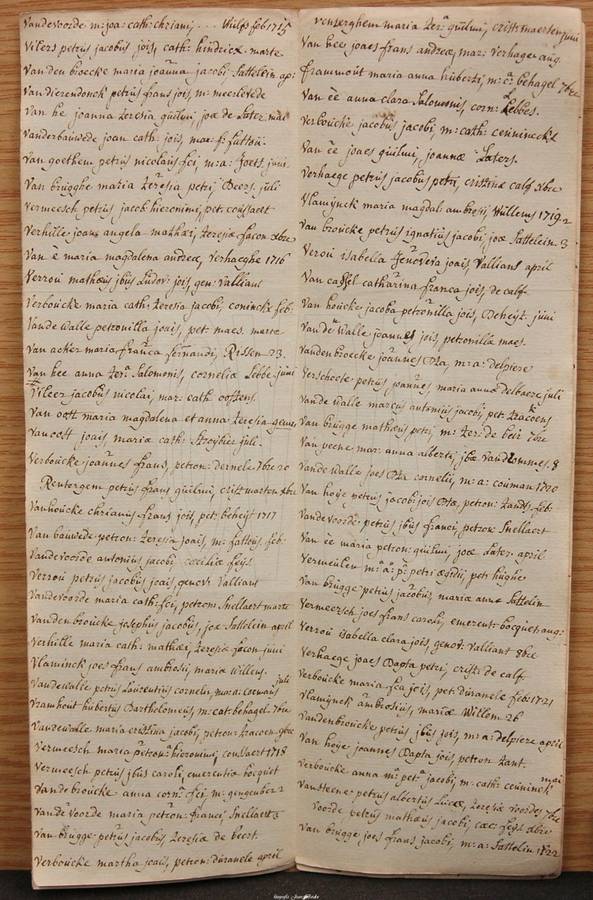 Vandevoorde m: joa: cath: chriani, ... Wulfs feb 1715
Vilers petrus jacobus jois, cath: hendricx marte
Van den broecke maria joanna jacobi Sattelein ap:
Van Dierendonck petrus frans jois, m: meerlevede
Van he joanna Zeresia guilmi, joae de Later. mai
Vanderbauwede joan cath: jois, mar: fr:
Van goethem petrus nicolaus fci m: a: Joets. juni
Van brugghe maria Zeresia petri Beers. juli
Vermeesch petrus jacob hieronimi, pet: consaert
Verhille joans angela mathaei, Zeresiae facon xbre
Van e maria magdalena andreae, Verhaeghe 1716
Verrou mathaeus jbus Ludov: jois, gen: Valliant
Verboucke maria cath: Zeresia jacobi, coninckx feb:
Vande walle petronilla joais, pet: maes. marte
Van acker maria franca fernandi, Rissen 23.
Van hee anna Zer: Salomonis, cornelia Lebbe juni
Vileer jacobus nicolai, mar: cath: oostens.
Van oost maria magdalena et anna Zeresia
Van oost joais maria cath: Stroybier juli
Verboucke joannes frans, petron: dernele 7bre 20
Rentergem petrus frans guilmi, crist: marten xbre
Vanhoucke chrianus frans jois, pet: beheyt 1717
Van bauwede petron: Zeresia joais, m: feb:
Vandevoorde antonius jacobi, caeciliae feijs
Verrou petrus jacobus joais, genov: Valliant
Vandevoorde maria cath: fci, petron: Snellaert marte
Vanden broucke josephus jacobi, joae Sattelein april
Verhille maria cath: mathaei, Zeresiae facon juni
Vlaminck joes frans ambrosii, mariae Willems.
Vande walle petrus Laurentius cornelii, juli
Vramhout hubertus Bartholomeus, m: cat: behagel 7bre
Vande walle maria cristina jacobi, petron: tracoen 9bre
Vermeesch maria petron: hieronimi, consaert 1718
Vermeesch petrus jbus caroli, emerentia bocquet
Vande broucke anna corn: fci, m: 2
Vande voorde maria petron: franci, Snellaert 5
Van brugge petrus jacobus Zeresiae de beert.
Verboucke martha joais, petron: duranele april
renterghem maria Zer: guilmi, crist: maerten juni
Van hee joaes frans andreae, mar: Verhage aug.
framhout maria anna huberti, m: c: behagel 7bre
Van ee anna clara Salomonis, corn: Lebbes.
Verboucke jacobus jacobi, m: cath: ceninckt
Van ee joaes guilmi, joannae Laters.
Verhaege petrus jacobus petri, cristinae calf xbre
Vlamynck maria magdal: ambrosi, Willems 1719
Van broucke petrus ignatius jacobi, joae Sattelein 3
Verou isabella Jenovevia joais, Valliant april
Van cassel catharina franca jois, de calf.
Van houcke jacoba petronilla jois, Beheyt. juni
Vande Walle joannes jois, petronilla maes.
Vanden broecke joannes Bta, m: a: delpiere
Verschoete petrus joannes maria anna delbaere juli
Vande walle marcus antonius jacobi, pet: tracoen
Van brugge mathaeus petri, m: Zer: de beir 7bre
Van peene mar: anna alberti, jbae. Vandommes. 8
Vande Walle joes Bta cornelii, m: a: couman 1720
Van hoye petrus jacobi jois Bta, petron: Zandt. feb:
Vande voorde petrus jbus franci, petron: Snellaert
Van ee maria petron: guilmi, joae Later. april
Vermeulen m: a: p: petri aegidii, pet: hughe
Van brugge petrus jacobus, mariae annae Sattelin
Vermeersch joes frans caroli, emerent: bocquet aug:
Verrou isabella clara jois, genov: Valliant 8bre
Verhaege joaes Bapta petri, cristi: de calf
Verboucke maria fca jois, pet: duranele feb: 1721
Vlamynck ambrosius, mariae Willem 26
Vandenbroucke petrus jbus jois, m: a: delpiere april
Van hoye joannes Bapta jois, petron: zant.
Verboucke anna m: pet: jacobi, m: cath: ceuninck mai
Vansteene petrus albertus Lucae, Zeresiae voordes 7bre
Voorde petrus mathaeus jacobi, caec: feys xbre
Van brugge joes frans jacobi, m: a: Sattelin 1722